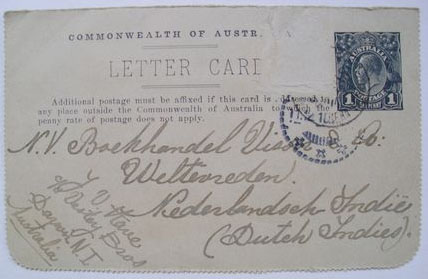 COMMONWEALTH OF AUSTR A
LETTER CARD
Additional postage must be affixed if this card is
any place outside the Commonwealth of Australia to which the
penny rate of postage does not apply.
AUSTRALIA
1 1
POSTAGE
N.V. Boekhandel Visser & Co:
Weltevreden.
Nederlandsch Indië
(Dutch Indies).
Bros
Darwin N.T.
Australia